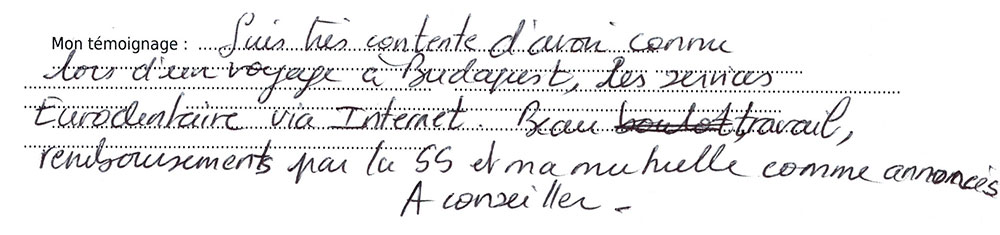 Mon témoignage : Suis très contente d'avoir connu
lors d'un voyage à Budapest, les services
Eurodentaire via Internet. Beau boulot travail,
remboursements par la SS et ma mutuelle comme annoncés
A conseiller -